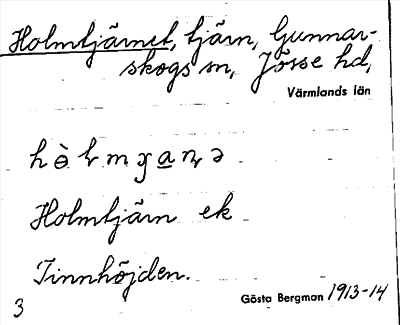 Holmtjärnet, tjärn, Gunnar-
skogs sn, Jösse hd,
Värmlands län
Holmtjärn ek
Tinnhöjden.
Gösta Bergman 1913-14
3